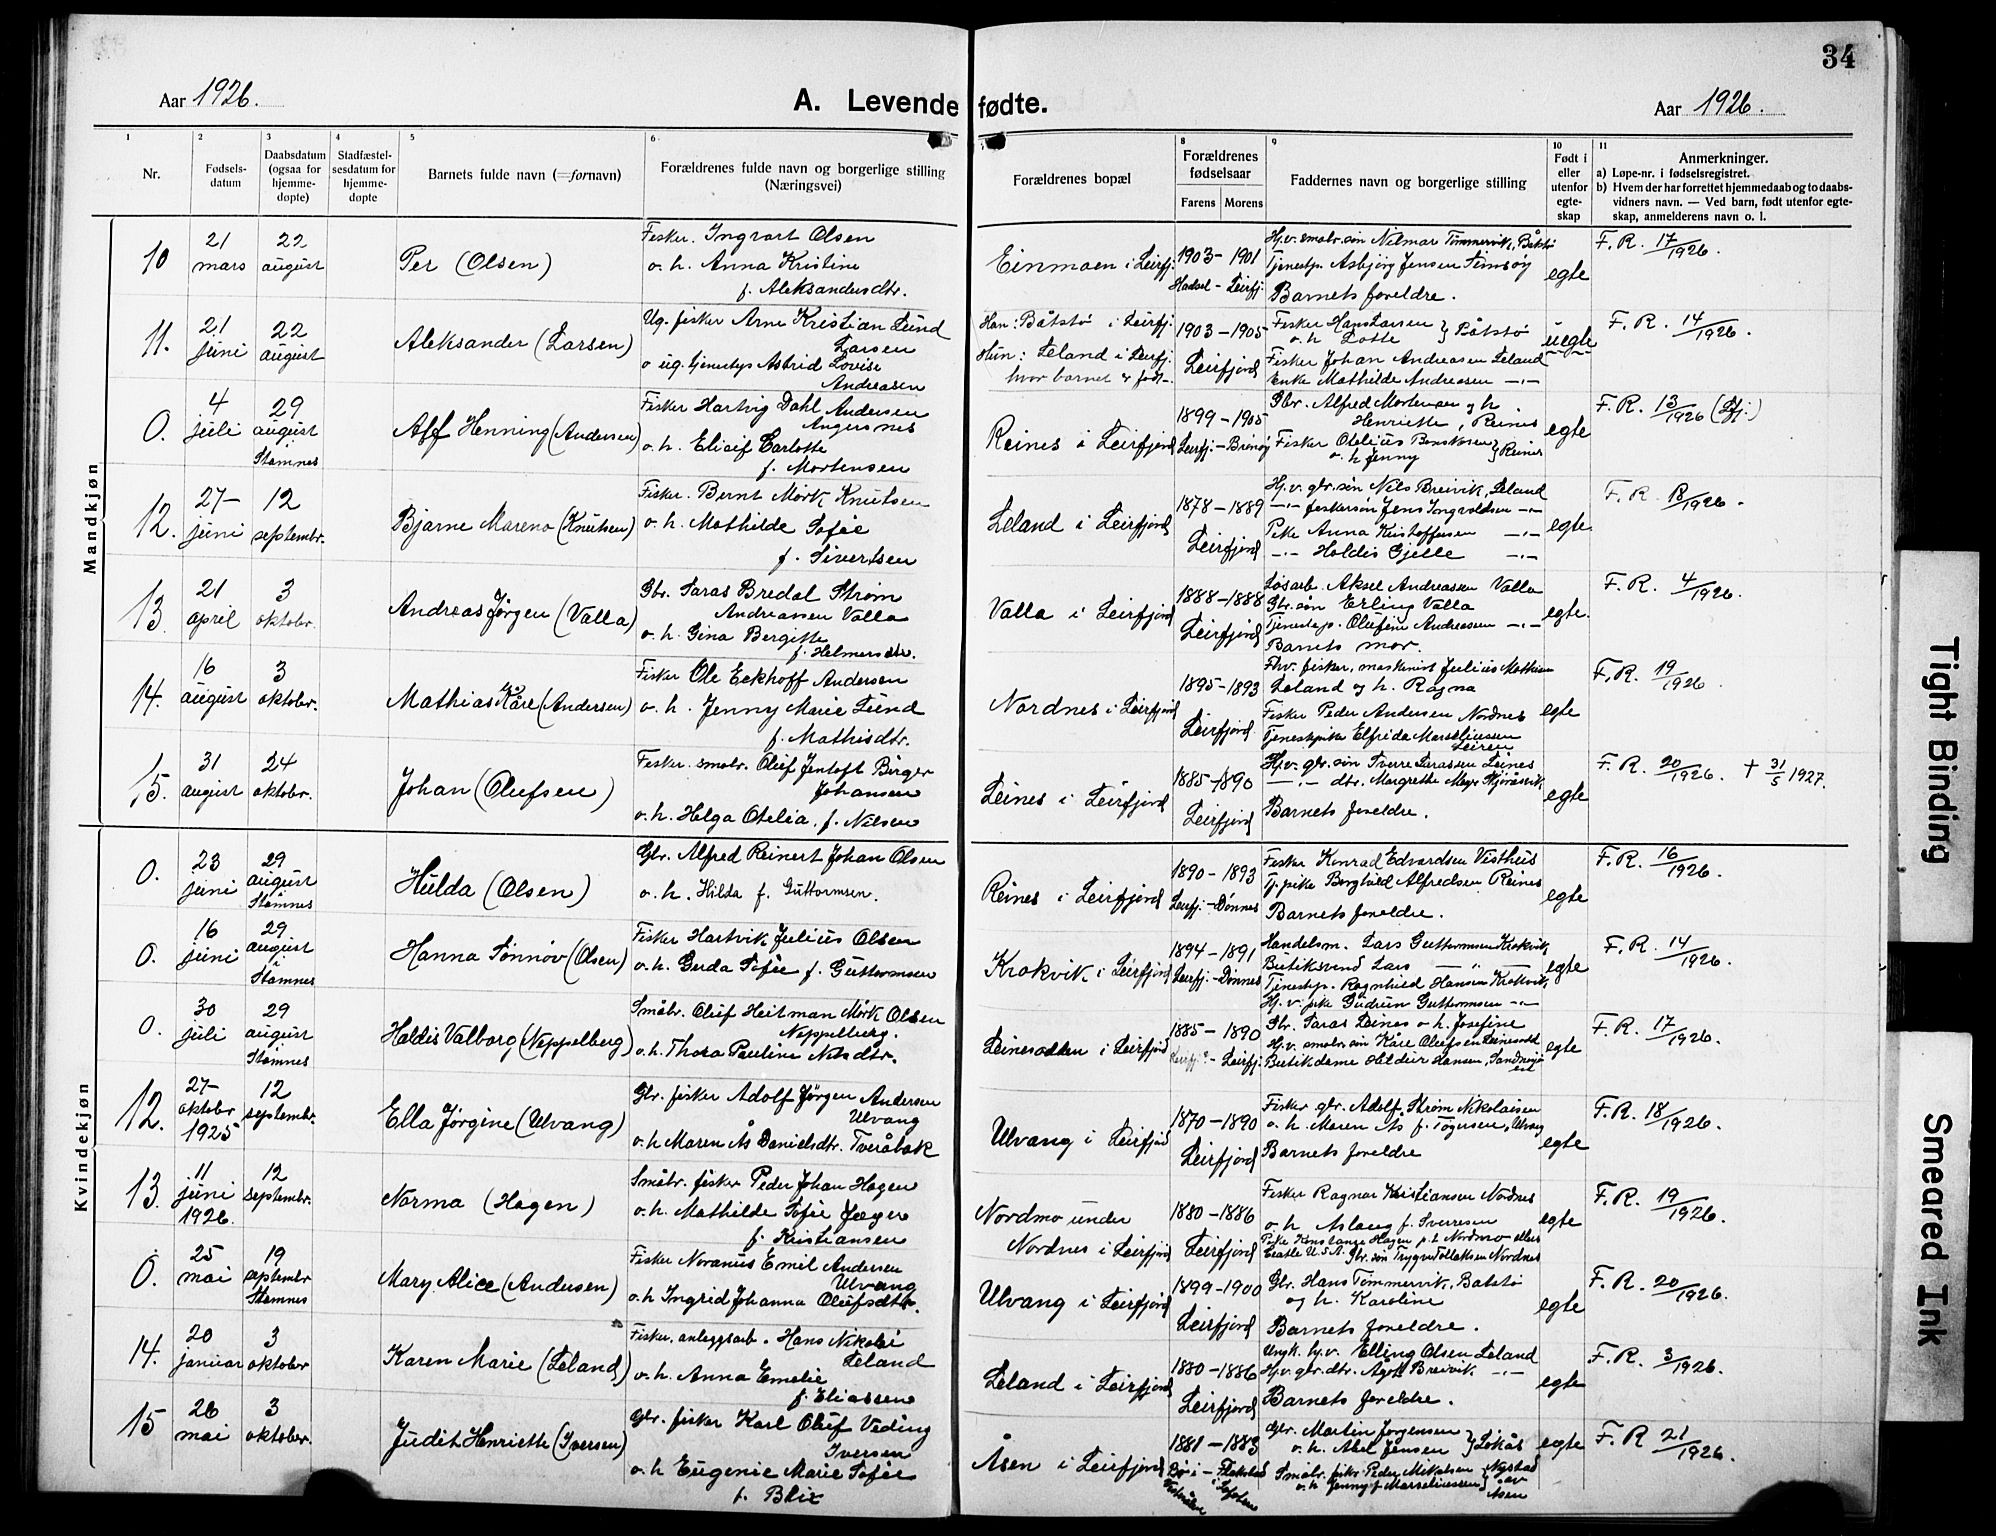 34
Aar 1926.
A. Levende fødte.
Aar 1926.
1 2 3 4 5 6 8 9 10 11
Nr.
Fødsels-
datum
Daabsdatum
(ogsaa for
hjemme-
døpte)
Stadfæstel-
sesdatum for
hjemme-
døpte
Barnets fulde navn (=fornavn)
Forældrenes fulde navn og borgerlige stilling
(Næringsvei)
Forældrenes bopæl
Forældrenes
fødselsaar
Farens Morens
Faddernes navn og borgerlige stilling
Født i
eller
utenfor
egte-
skap
Anmerkninger.
a) Løpe-nr. i fødselsregistret.
b) Hvem der har forrettet hjemmedaab og to daabs-
vidners navn. — Ved barn, født utenfor egte-
skap, anmelderens navn o. l.
Mandkjøn
10
21
mars
22
august
Per (Olsen)
Fisker. Ingvart Olsen
o. h. Anna Kristine
f. Aleksandersdtr.
Einmoen i Leirfj.
1903 - 1901
Hadsel - Leirfj.
Hj.v. smabr. søn Nilmar Tømmervik, Båtstø
Tjenestp. Asbjørg Jensen
Barnets foreldre.
egte
F. R. 17/1926.
11.
21
juni
22
august
Aleksander (Larsen)
Ug. fisker Arne Kristian Lund
Larsen
o ug. tjenestp Astrid Lovise
Andreasen
Han: Båtstø i Leirfj.
Hun: Leland i Leirfj.
hvor barnet er født.
1903 - 1905
Leirfjord
Fisker Hans Larsen
o. h Lotte } Båtstø
Fisker Johan Andreasen Leland
Enke Mathilde Andreasen —„—
uegte
F. R. 14/1926.
0.
4
juli
29
august
Stamnes
Alf Henning (Andersen)
Fisker Hartvig Dahl Andersen
Angersnes
o. h. Carlotte
f. Mortensen
Reines i Leirfjord
1899 - 1905
Leirfj. - Brønøy
Gbr. Alfred Mortensen og h.
Henriette, Reines
Fisker Otelius
o. h Jenny } Reines
egte
F. R. 13/1926 (Lfj.)
12.
27-
juni
12
septembr.
Bjarne Mareno (Knutsen)
Fisker. Bernt Mørk Knutsen
o. h. Mathilde Sofie
f. Sivertsen
Leland i Leirfjord
1878 - 1889
Leirfjord
Hj. v. gbr. søn Nils Breivik, Leland
—„— fiskersøn Jens Ingvaldsen —„—
Pike Anna Kristoffersen —„—
—„— Haldis Gjelle —„—
egte.
F. R. 18/1926.
13
21
april
3
oktobr.
Andreas Jørgen (Valla)
Gbr. Saras Bredal Strøm
Andreassen Valla
o. h. Gina Bergitte
f. Helmersdtr.
Valla i Leirfjord
1888 - 1888
Leirfjord
Løsarb. Aksel Andreassen Valla
Gbr. søn Erling Valla
Tjenestep. Olufine Andreasen —„—
Barnets mor.
egte.
F. R. 4/1926.
14.
16
august
3
oktobr.
Mathias Kåre (Andersen)
Fisker Ole Eckhoff Andersen
o. h. Jenny Marie Lund
f. Mathisdtr.
Nordnes i Leirfjord
1895 - 1893
Leirfjord.
Fhv. fisker, maskinist Julius Mathisen
Leland og h. Ragna
Fisker Peder Andersen Nordnes
Tjenestepike Elfrida Marseliussen
Leiren
egte
F. R. 19/1926
15.
31
august
24
oktobr.
Johan (Olufsen)
Fisker. smabr. Oluf Jentoft Birger
Johansen
o. h. Helga Otelia, f. Nilsen
Leines i Leirfjord
1885 - 1890
Leirfjord
Hj.v. gbr. søn Sverre Larassen Leines
—„— dtr. Margrethe
Barnets foreldre.
egte
F. R. 20/1926. † 31/5 1927.
Kvindekjøn
0.
23
juni
29
august
i
Stamnes
Hulda (Olsen)
Gbr. Alfred Reinert Johan Olsen
o. h. Hilda f. Guttormsen.
Reines i Leirfjord
1890 - 1893
Leirfj. - Dønnes
Fisker Konrad Edvardsen Visthus
Tj. pike Borghild Alfredsen Reines
Barnets foreldre.
egte
F. R. 16/1926.
0.
16
juni
29
august
i
Stamnes
Hanna Sønnøv (Olsen)
Fisker Hartvik Julius Olsen
o. h. Gerda Sofie f. Guttormsen
Krokvik i Leirfjord
1894 - 1891
Leirfj. - Dønnes
Handelsm. Lars Guttormsen Krokvik,
Butiksvend Lars —„—
Tjenestp. Ragnhild Hansen Krokvik,
Hj. v. pike Gudrun Guttormsen —„—
egte
F. R. 14/1926.
0.
30
juli
29
august
Stamnes
Haldis Valborg (Neppelberg)
Småbr. Oluf Heitman Mørk Olsen
Neppelberg.
o. h. Thora Pauline Nilsdtr.
Leinesodden i Leirfjord
1885 - 1890
Leirfj. - Leirfj.
Gbr. Saras Leines o. h. Josefine
Hj. v. smabr. søn Kåre Olufsen Leinesodd.
Butikdame Hildur Hansen,
egte
F. R. 17/1926.
12.
27-
oktobr
1925
12
septembr.
Ella Jørgine (Ulvang)
Gbr. fisker Adolf Jørgen Andersen
Ulvang
o. h Maren Ås Danielsdtr. Tveråbak
Ulvang i Leirfjord
1870 - 1890
Leirfjord
Fisker gbr. Adolf Strøm Nikolaisen
o. h. Maren Ås f. Tøgersen, Ulvang
Barnets foreldre
egte
F. R. 18/1926.
13.
11
juni
1926.
12
septembr.
Norma (Hagen)
Småbr. fisker Peder Johan Hagen
o. h. Mathilde Sofie Jæger
f. Kristiansen
Nordmo under
Nordnes i Leirfjord
1880 - 1886
Leirfjord
Fisker Ragnar Kristiansen Nordnes
o. h Aslaug f. Sverresen
Pike Konstance Hagen p.t. Nordmo ellers
Seatle U.S.A. Gbr. søn Trygve Tollaksen Nordnes
egte
F. R. 19/1926.
0.
25
mai
19
septembr
Stamnes
Mary Alice (Andersen)
Fisker Novanus Emil Andersen
Ulvang
o. h Ingrid Johanna Olufsdtr.
Ulvang i Leirfjord
1899 - 1900
Leirfjord
Gbr. Hans Tømmervik, Båtstø
og h. Karoline
Barnets foreldre.
egte
F. R. 20/1926.
14.
20
januar
3
oktober
Karen Marie (Leland)
Fisker. anleggsarb. Hans Nikolai
Leland
o. h. Anna Emelie
f. Eliassen
Leland i Leirfjord
1880 - 1886
Leirfjord
Ungk. hj.v. Elling Olsen Leland
Hj.v. gbr. dtr. Agot Breivik —„—
Barnets foreldre.
egte
F. R. 3/1926.
15
26
mai
3
oktober.
Judit Henriette (Iversen)
Gbr. fisker Karl Oluf Veding
Iversen
o. h Eugenie Marie Sofie
f. Blix
Åsen i Leirfjord
1881 - 1883
Bø i - Flakstad
Vesterålen i Lofoten
Gbr. Martin Jørgensen
o. h. Abel Jensen } Løkås
Småbr. fisker Peder Mikalsen
o. h Jenny f. Marseliussen } Nystad
av
Åsen
egte
F. R 21/1926.
Tight Binding
Smeared Ink